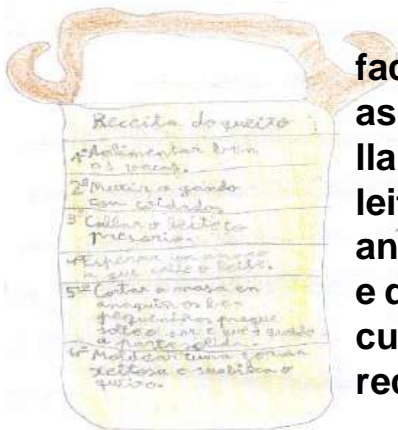 Receita do queixo
1º Aplimentar ben
as vacas.
2º Muxir o gando
con coidado.
3º Callar o leite co
presorio.
4º Esperar un anaco
a que calle o leite.
5º Cortar a masa en
anaquiños ben
pequeniños
solte o e
a parte
Moldear forma
xeitosa e o
queixo.
fac
as
lla
leit
an
e d
cu
rec